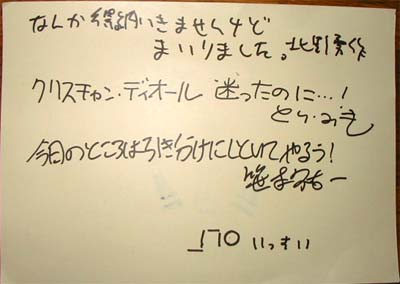 なんか得納いきませんけど
まいりました。北野勇作
クリスチャン・ディオール 迷ったのに…!
とり・みき
今日のところは引き分けにしといてやろう!
170 いっすい